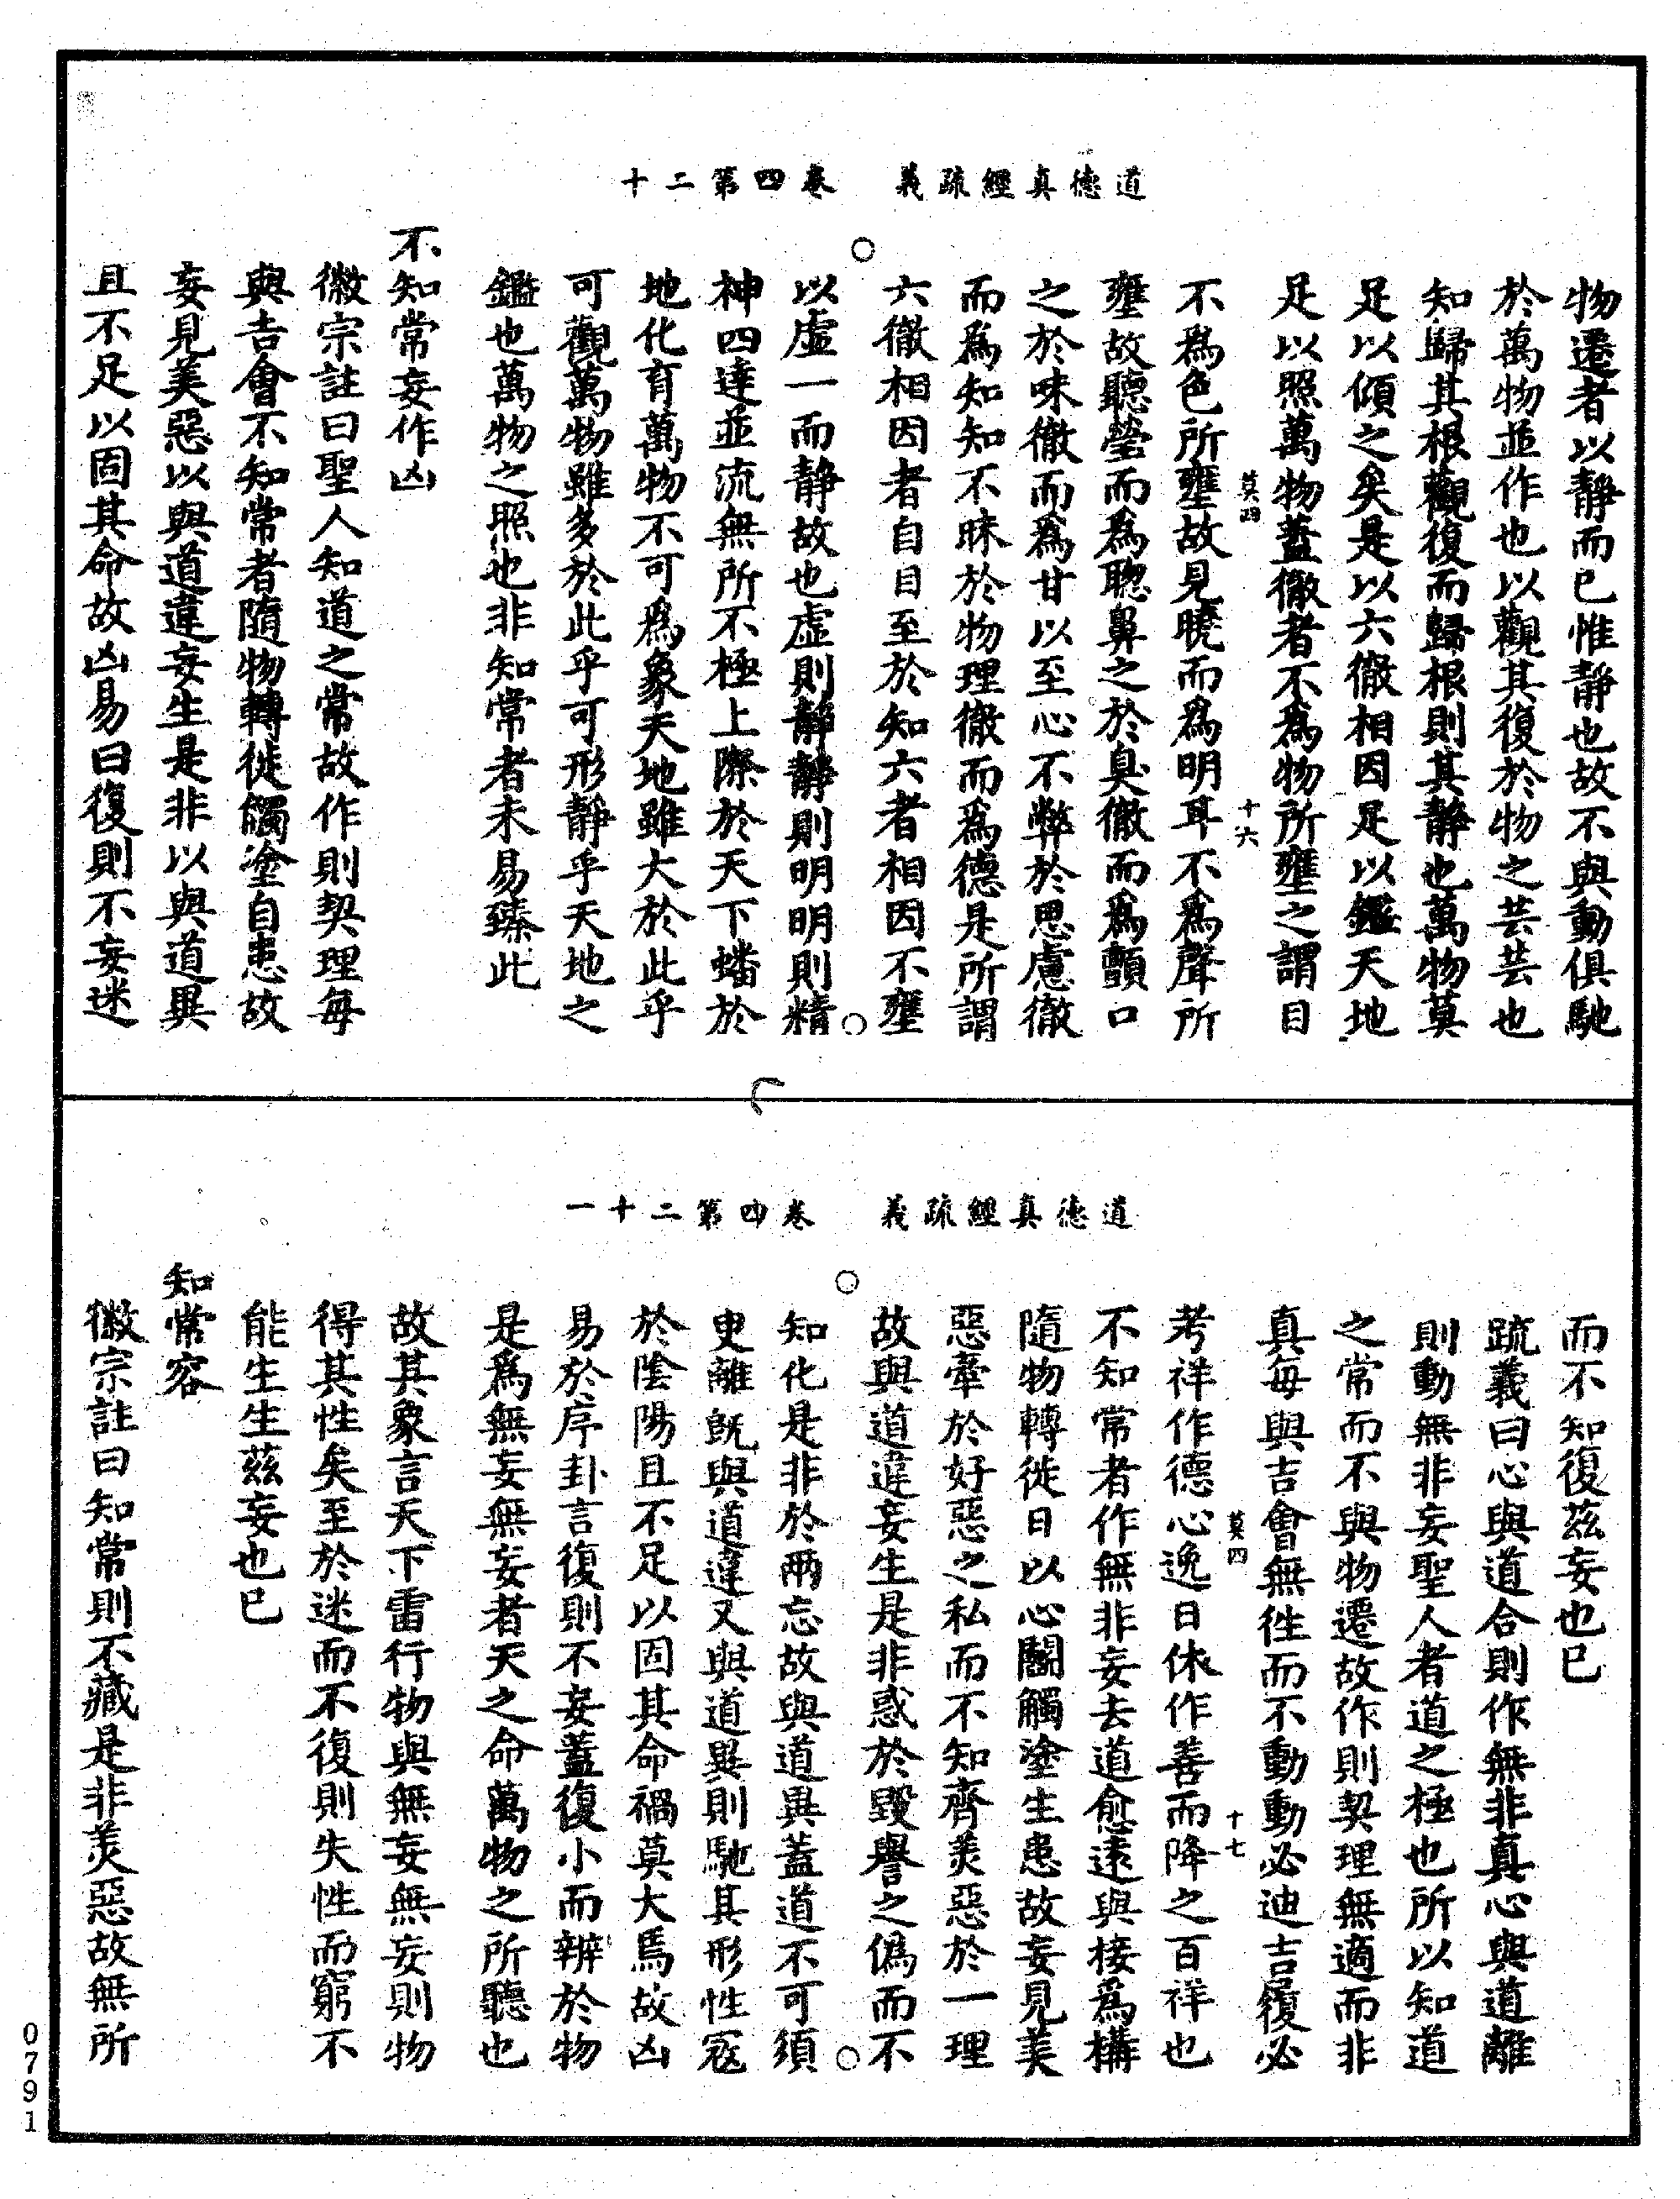 道德真經疏義　卷四第二十
物遷者以靜而已惟靜也故不與動俱馳
於萬物並作也以觀其復於物之芸芸也
知歸其根觀復而歸根則其靜也萬物莫
足以傾之矣是以六徹相因足以鑑天地
足以照萬物蓋徹者不為物所壅之謂目
莫四　十六
不為色所壅故見曉而為明耳不為聲所
壅故聽瑩而為聰鼻之於臭徹而為顫口
之於味徹而為甘以至心不弊於思慮徹
而為知知不昧於物理徹而為德是所謂
六徹相因者自目至於知六者相因不壅
以虛一而靜故也虛則靜靜則明明則精
神四達並流無所不極上際於天下蟠於
地化育萬物不可為象天地雖大於此乎
可觀萬物雖多於此乎可形靜乎天地之
鑑也萬物之照也非知常者未易臻此
不知常妄作凶
徽宗註曰聖人知道之常故作則契理每
與吉會不知常者隨物轉徙觸塗自患故
妄見美惡以與道違妄生是非以與道異
且不足以固其命故凶易曰復則不妄迷
道德真經疏義　卷四第二十一
而不知復茲妄也已
疏義曰心與道合則作無非真心與道離
則動無非妄聖人者道之極也所以知道
之常而不與物遷故作則契理無適而非
真每與吉會無徃而不動動必迪吉履必
莫四　十七
考祥作德心逸日休作善而降之百祥也
不知常者作無非妄去道愈遠與接為構
隨物轉徙日以心鬬觸塗生患故妄見美
惡牽於好惡之私而不知齊美惡於一理
故與道違妄生是非惑於毀譽之偽而不
知化是非於兩忘故與道異蓋道不可須
臾離既與道違又與道異則馳其形性寇
於陰陽且不足以固其命禍莫大焉故凶
易於序卦言復則不妄蓋復小而辨於物
是為無妄無妄者天之命萬物之所聽也
故其象言天下雷行物與無妄無妄則物
得其性矣至於迷而不復則失性而窮不
能生生茲妄也已
知常容
徽宗註曰知常則不藏是非美惡故無所
0791